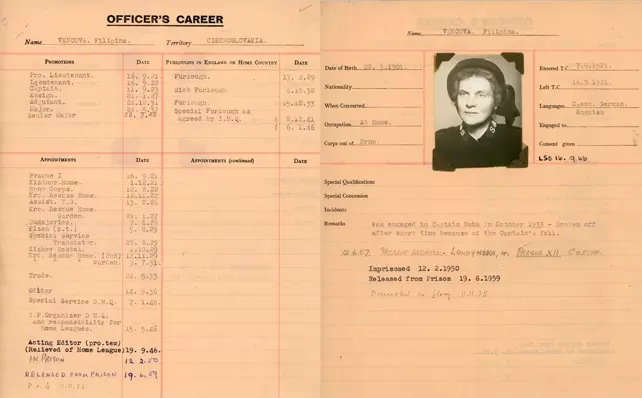 OFFICER'S CAREER
Name VENCOVA, Filipina. Territory CZECHOSLOVAKIA.
PROMOTIONS DATE FURLOUGHS IN ENGLAND OR HOME COUNTRY DATE
Pro. Lieutenant. 16. 9.21 Furlough. 13. 2.29
Lieutenant. 16. 9.22
Captain. 11. 9.23 Sick Furlough.
Ensign. 21. 1.27
Adjutant. Furlough. 15.12.33
Major. Special Furlough as
Senior Major agreed by I.H.Q.
APPOINTMENTS DATE APPOINTMENTS (continued) DATE
Prague I 16. 9.21
Kinnoor Home. 1.12.21
Brno Corps.
Prg. Rescue Home.
Assist. T.G.
Prg. Rescue Home.
Warden. 21. 1.27
7. 6.29
Plzen (p.t.) 5. 8.29
Special Service
Translator.
Zizkov Hostel. 1.10.29
Prg. Rescue Home. (2nd) 12.11.29
" " Warden. 9. 7.31
Trade. 24. 8.33
Editor 14. 9.36
Special Service D.H.Q. 7. 1.46.
Y.P. Organizer D H.Q.
and responsibility for
Home Leagues. 15. 5.46.
Acting Editor (pro.tem)
(Relieved of Home League) 19. 9.46.
IN PRISON 12.2.50
RELEASED FROM PRISON 19.6.59
P to G 11.11.75
Name VENCOVA, Filipina.
Date of Birth 28. 3.1901.
Nationality
When Converted
Occupation At Home.
Corps out of Brno.
Entered T.C 7.6.1921.
Left T.C. 16.9.1921.
Languages Czech. German.
English
Engaged to
Consent given
LSS 10. 9.46
Special Qualifications
Special Concession
Incidents
Remarks Was engaged to Captain Huba in October 1933 - broken off
after short time because of the Captain's fall.
PRAGUE XII
Imprisoned 12. 2.1950
Released from Prison 19. 6.1959
Promoted to Glory 11.11.75